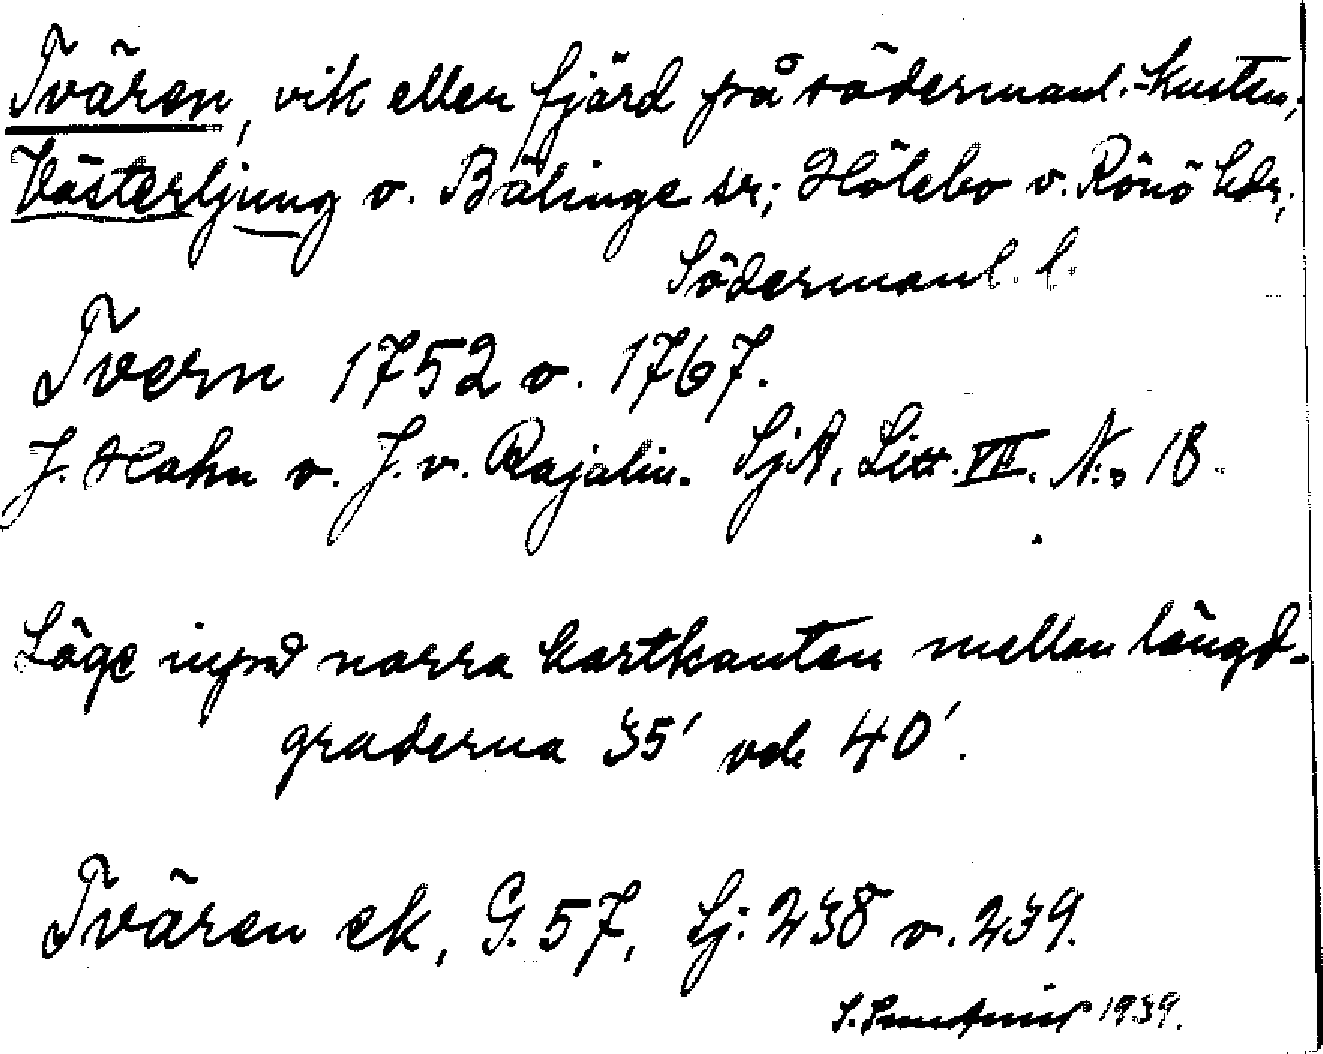 Tvären, vik eller fjärd på södermanl.-kusten,
Västerljung o. Bälinge sr; Hölebo o. Rönö hdr,
Södermanl. l.
Tvern 1752 o. 1767.
J. Hahn o. J. v. Rajalin. SjA, Litt. VII. N:o 18.
Läge invid norra kartkanten mellan längd-
graderna 35' och 40'.
Tvären ek, G. 57, Sj: 238 o. 239.
S. 1939.